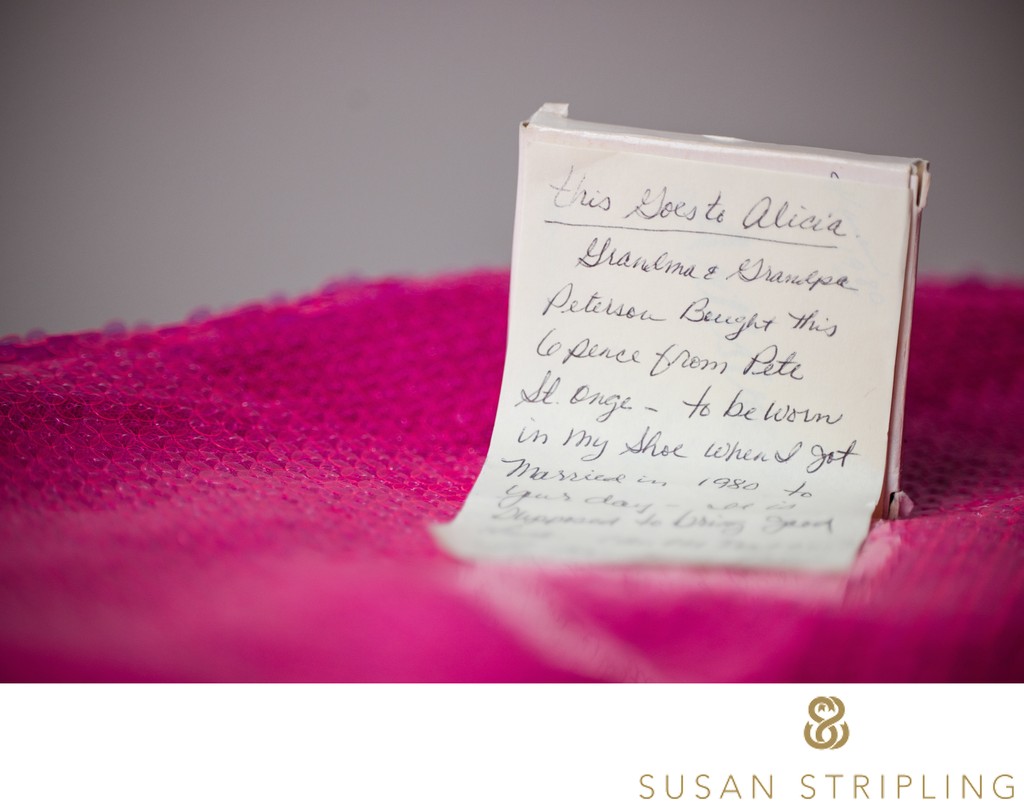 this Goes to Alicia.
Grandma & Grandpa
Peterson Bought this
6 pence from Pete
St. Onge – to be worn
in my Shoe when I got
Married in 1980 to
your day – it is
Supposed to bring good
SUSAN STRIPLING